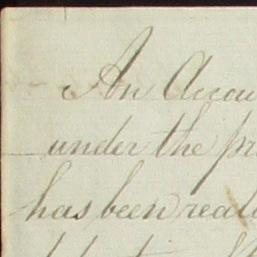 An Accou
under the pr
has been reali